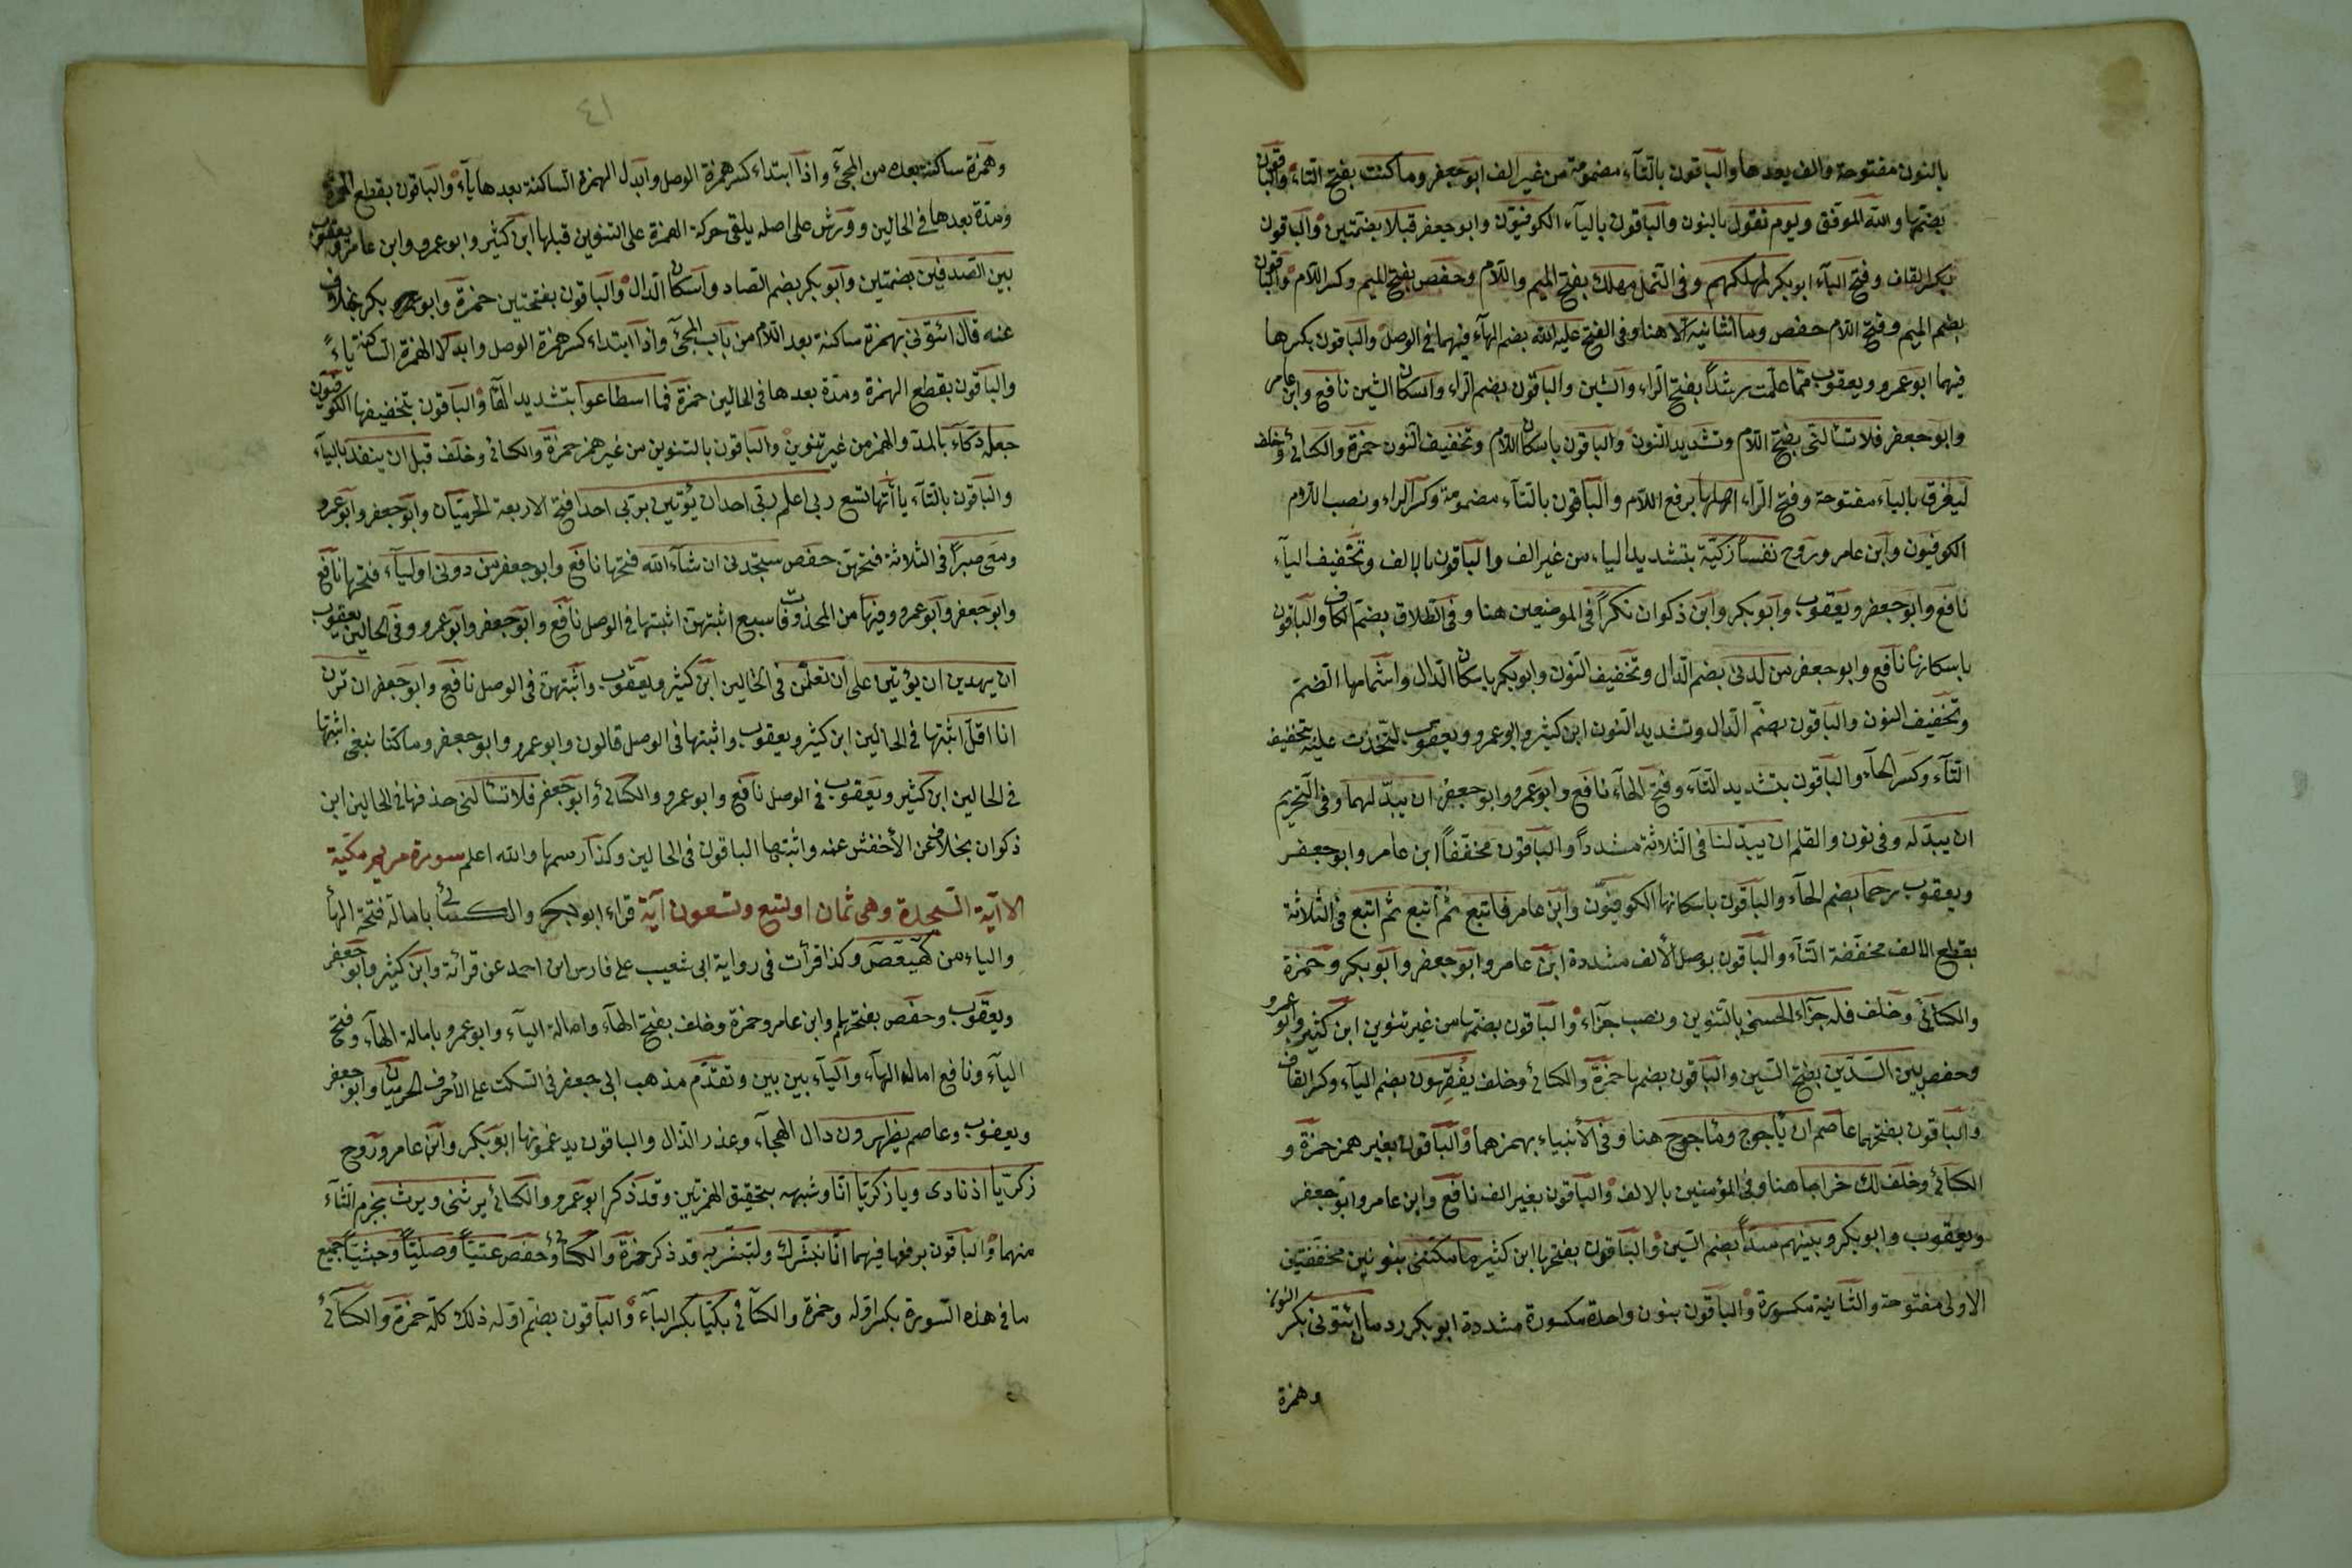 بالنون مفتوحة والف بعدها والباقون بالتآء مضمومة من غير الف ابو جعفر وما كنت بفتح التاء والباقون
بضمها والله الموفق ويوم نقول بالنون والباقون باليآء الكوفيون وابو جعفر قبلا بضمتين والباقون
بكسر القاف وفتح البآء ابو بكر لمهلكهم وفى النمل مهلك بفتح الميم واللام وحفص بفتح الميم وكسر اللام والباقون
بضم الميم وفتح اللام حفص وما انسانيه الا هنا وفى الفتح عليه الله بضم الهآء فيهما في الوصل والباقون بكسرها
فيهما ابو عمرو ويعقوب مما علمت رشداً بفتح الراء والشين والباقون بضم الراء واسكان الشين نافع وابن عامر
وابو جعفر فلا تسألنى بفتح اللام وتشديد النون والباقون باسكان اللام وتخفيف النون حمزة والكسائى وخلف
ليغرق بالياء مفتوحة وفتح الراء اهلها برفع اللام والباقون بالتآء مضمومة وكسر الراء ونصب اللام
الكوفيون وابن عامر وروح نفساً زكية بتشديد الياء من غير الف والباقون بالالف وتخفيف اليآء
نافع وابو جعفر ويعقوب وابو بكر وابن ذكوان نكراً فى الموضعين هنا وفى الطلاق بضم الكاف والباقون
باسكانها نافع وابو جعفر من لدنى بضم الدال وتخفيف النون وابو بكر باسكان الدال واشمامها الضم
وتخفيف النون والباقون بضم الدال وتشديد النون ابن كثير وابو عمرو ويعقوب لتخذت عليه بتخفيف
التآء وكسر الحآء والباقون بتشديد التآء وفتح الحآء نافع وابو عمرو وابو جعفر ان يبدلهما وفى التحريم
ان يبدله وفى نون والقلم ان يبدلنا فى الثلاثة مشدداً والباقون مخففاً ابن عامر وابو جعفر
ويعقوب رحما بضم الحآء والباقون باسكانها الكوفيون وابن عامر فاتبع ثم اتبع ثم اتبع فى الثلاثة
بقطع الالف مخففة التآء والباقون بوصل الألف مشددة ابن عامر وابو جعفر وابو بكر وحمزة
والكسائى وخلف فله جزاء الحسنى بالتنوين ونصب جزآء والباقون بضمها من غير تنوين ابن كثير وابو عمرو
وحفص بين السدين بفتح السين والباقون بضمها حمزة والكسائى وخلف يفقهون بضم اليآء وكسر القاف
والباقون بفتحهما عاصم ان يأجوج ومأجوج هنا وفى الأنبياء بهمزهما والباقون بغير همز حمزة و
الكسائى وخلف لك خراجا هنا وفى المؤمنين بالالف والباقون بغير الف نافع وابن عامر وابو جعفر
ويعقوب وابو بكر وبينهم سداً بضم السين والباقون بفتحها ابن كثير ما مكننى بنونين مخففتين
الاولى مفتوحة والثانية مكسورة والباقون بنون واحدة مكسورة مشددة ابو بكر ردما ائتونى بكسر النون
وهمزة
٤١
وهمزة ساكنة بعده من المجئ واذا ابتداء كسر همزة الوصل وابدل الهمزة الساكنة بعدها يآء والباقون بقطع الهمزة
ومدة بعدها في الحالين وورش على اصله يلقى حركة الهمزة على التنوين قبلها ابن كثير وابو عمرو وابن عامر ويعقوب
بين الصدفين بضمتين وابو بكر بضم الصاد واسكان الدال والباقون بفتحتين حمزة وابو بكر بخلاف
عنه قال ائتونى بهمزة ساكنة بعد اللام من باب المجئ واذا ابتداء كسر همزة الوصل وابدلا الهمزة الساكنة ياءً
والباقون بقطع الهمزة ومدة بعدها فى الحالين حمزة فما اسطاعوا بتشديد الطآ والباقون بتخفيفها الكوفيون
جعله دكآء بالمد والهمز من غير تنوين والباقون بالتنوين من غير همز حمزة والكسائى وخلف قبل ان ينفد باليآء
والباقون بالتآء يأتها تسع ربى اعلم ربى احدا ان يؤتين بربى احدا فتح الاربعة الحرميان وابو جعفر وابو عمرو
ومعى صبراً فى الثلاثة فتحهن حفص ستجدنى ان شآء الله فتحها نافع وابو جعفر من دونى اوليآء فتحها نافع
وابو جعفر وابو عمرو وفيها من المحذوفات سبع اثبتهن اثبتها في الوصل نافع وابو جعفر وابو عمرو وفى الحالين يعقوب
ان يهدين ان يؤتين على ان تعلمن فى الحالين ابن كثير ويعقوب واثبتهن فى الوصل نافع وابو جعفر ان ترن
انا اقل اثبتها فى الحالين ابن كثير ويعقوب واثبتها فى الوصل قالون وابو عمرو وابو جعفر وما كنا نبغى اثبتها
في الحالين ابن كثير ويعقوب في الوصل نافع وابو عمرو والكسائى وابو جعفر فلا تسألنى حذفها فى الحالين ابن
ذكوان بخلاف عن الأخفش عنه واثبتها الباقون فى الحالين وكذا رسمها والله اعلم سورة مريم مكية
الا آية السجدة وهى ثمان او تسع وتسعون آية قراء ابو بكر والكسائى بامالة فتحة الهآ
والياء من كهيعص وكذا قرأت فى رواية ابى شعيب على فارس ابن احمد عن قرائة وابن كثير وابو جعفر
ويعقوب وحفص بفتحهما وابن عامر وحمزة وخلف بفتح الهآء وامالة اليآء وابو عمرو بامالة الهآء وفتح
اليآء ونافع امالة الهآء واليآء بين بين وتقدم مذهب ابى جعفر فى السكت على الأحرف الحرميان وابو جعفر
ويعقوب وعاصم يظهرون دال الهجآء وعند الذال والباقون يدغمونها ابو بكر وابن عامر وروح
زكريآ اذ نادى ويا زكريآ انا وشبهه بتحقيق الهمزتين وقد ذكر ابو عمرو والكسائى يرثنى ويرث بجزم الثآء
منهما والباقون برفعها فيهما انا نبشرك ولتبشر به قد ذكر حمزة والكسائى وحفص عتياً وصلياً وجثياً جميع
ما فى هذه السورة بكسر اوله وحمزة والكسائى بكيا بكسر البآء والباقون بضم اوله ذلك كله حمزة والكسائى